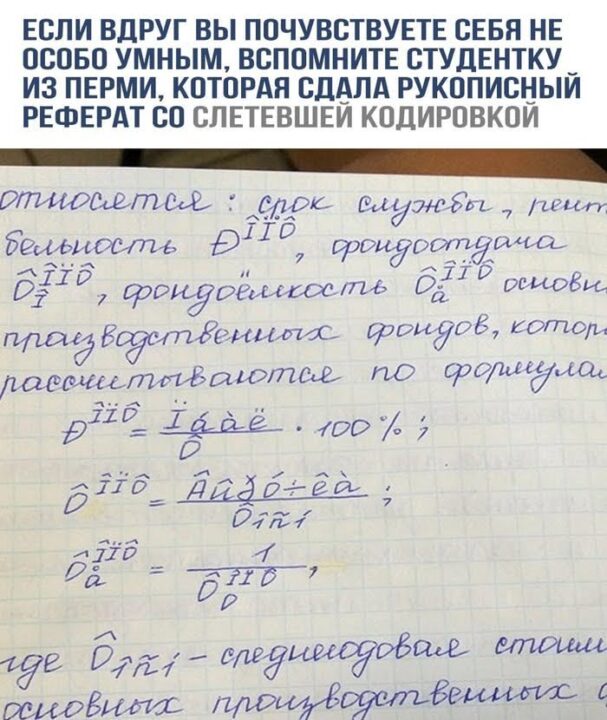 ЕСЛИ ВДРУГ ВЫ ПОЧУВСТВУЕТЕ СЕБЯ НЕ
ОСОБО УМНЫМ, ВСПОМНИТЕ СТУДЕНТКУ
ИЗ ПЕРМИ, КОТОРАЯ СДАЛА РУКОПИСНЫЙ
РЕФЕРАТ СО СЛЕТЕВШЕЙ КОДИРОВКОЙ
относятся : срок службы, рент
бельность Ð^ÎÏÔ, фондоотдача
Ô^ÎÏÔ_Î, фондоёмкость Ô^ÎÏÔ_å основн
производственных фондов, котор
рассчитываются по формулам
Ð^ÎÏÔ = Ïáàë / Ô · 100 % ;
Ô^ÎÏÔ = Âûðó÷êà / Ôîñí ;
Ô^ÎÏÔ_å = 1 / Ô^ÎÏÔ_О ,
где Ôîñí - среднегодовая стоим
основных производственных